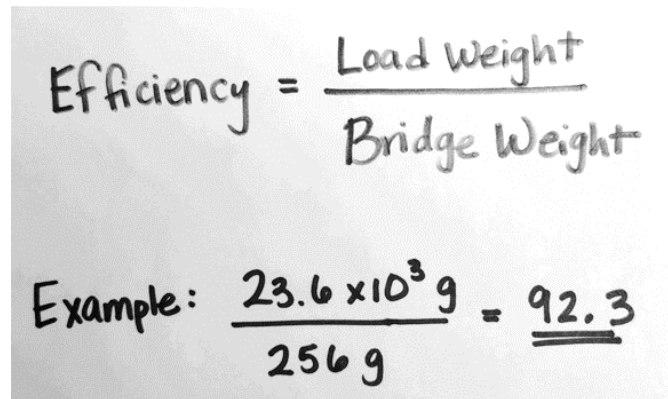 Efficiency = Load Weight / Bridge Weight
Example: 23.6 x10³ g / 256 g = 92.3